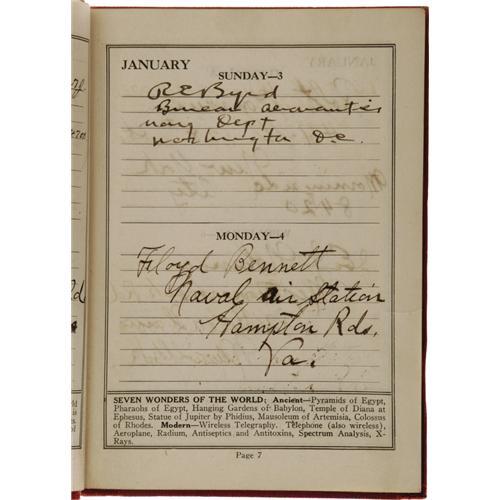 JANUARY
SUNDAY—3
R E Byrd
Bureau Aeronautics
Navy Dept
Washington D.C.
MONDAY—4
Floyd Bennett
Naval air Station
Hampton Rds.
Va.
SEVEN WONDERS OF THE WORLD: Ancient—Pyramids of Egypt,
Pharaohs of Egypt, Hanging Gardens of Babylon, Temple of Diana at
Ephesus, Statue of Jupiter by Phidius, Mausoleum of Artemisia, Colossus
of Rhodes. Modern—Wireless Telegraphy. Telephone (also wireless),
Aeroplane, Radium, Antiseptics and Antitoxins, Spectrum Analysis, X-
Rays.
Page 7